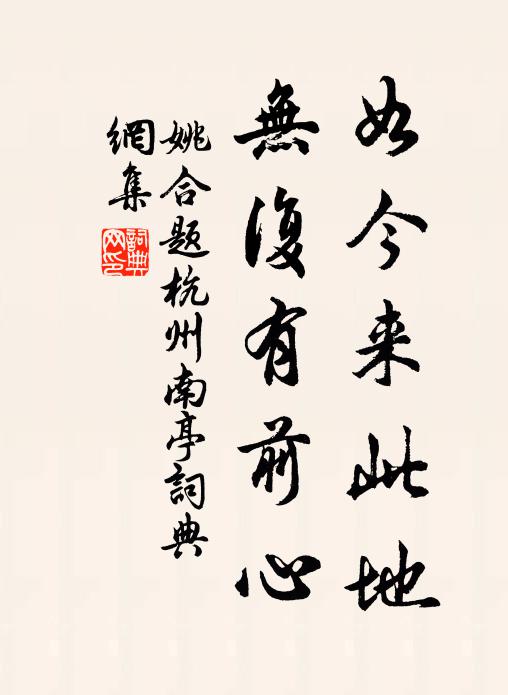 如今来此地
無復有前心
姚合题杭州南亭詞典
網集
詞典
网印